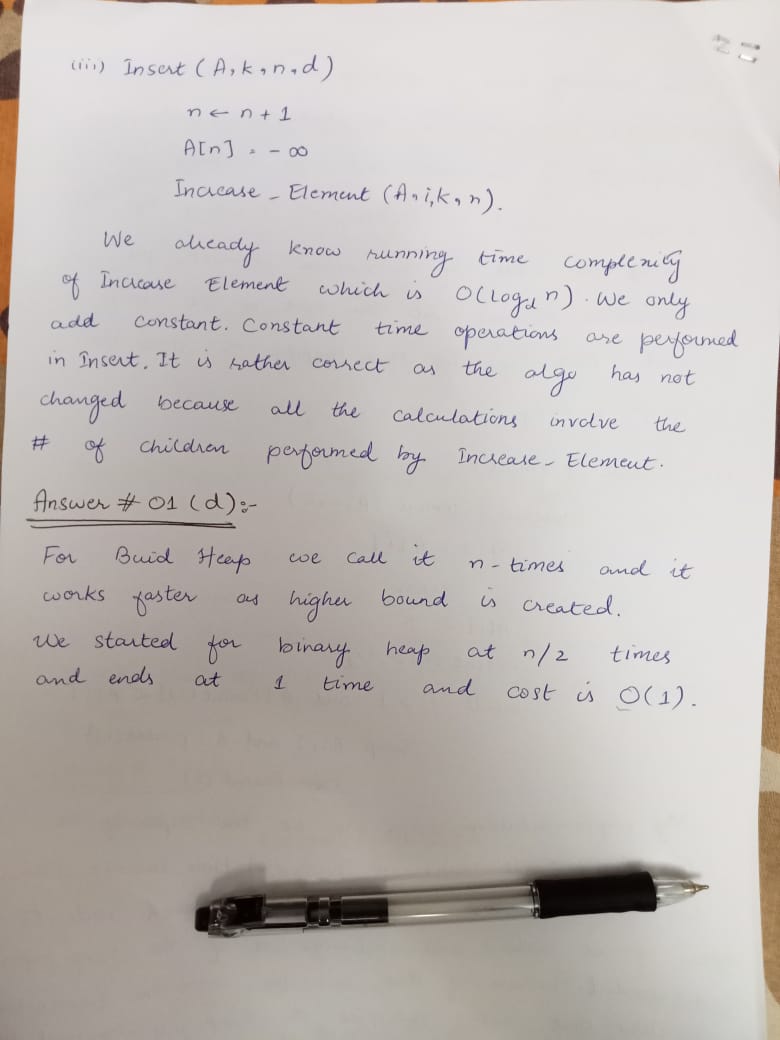 (iii) Insert (A, k, n, d)
n ← n + 1
A[n] = - ∞
Increase - Element (A, i, k, n).
We already know running time complexity
of Increase Element which is O(Log_d n). We only
add constant. Constant time operations are performed
in Insert. It is rather correct as the algo has not
changed because all the calculations involve the
# of children performed by Increase - Element.
Answer # 01 (d):-
For Buid Heap we call it n - times and it
works faster as higher bound is created.
We started for binary heap at n/2 times
and ends at 1 time and cost is O(1).